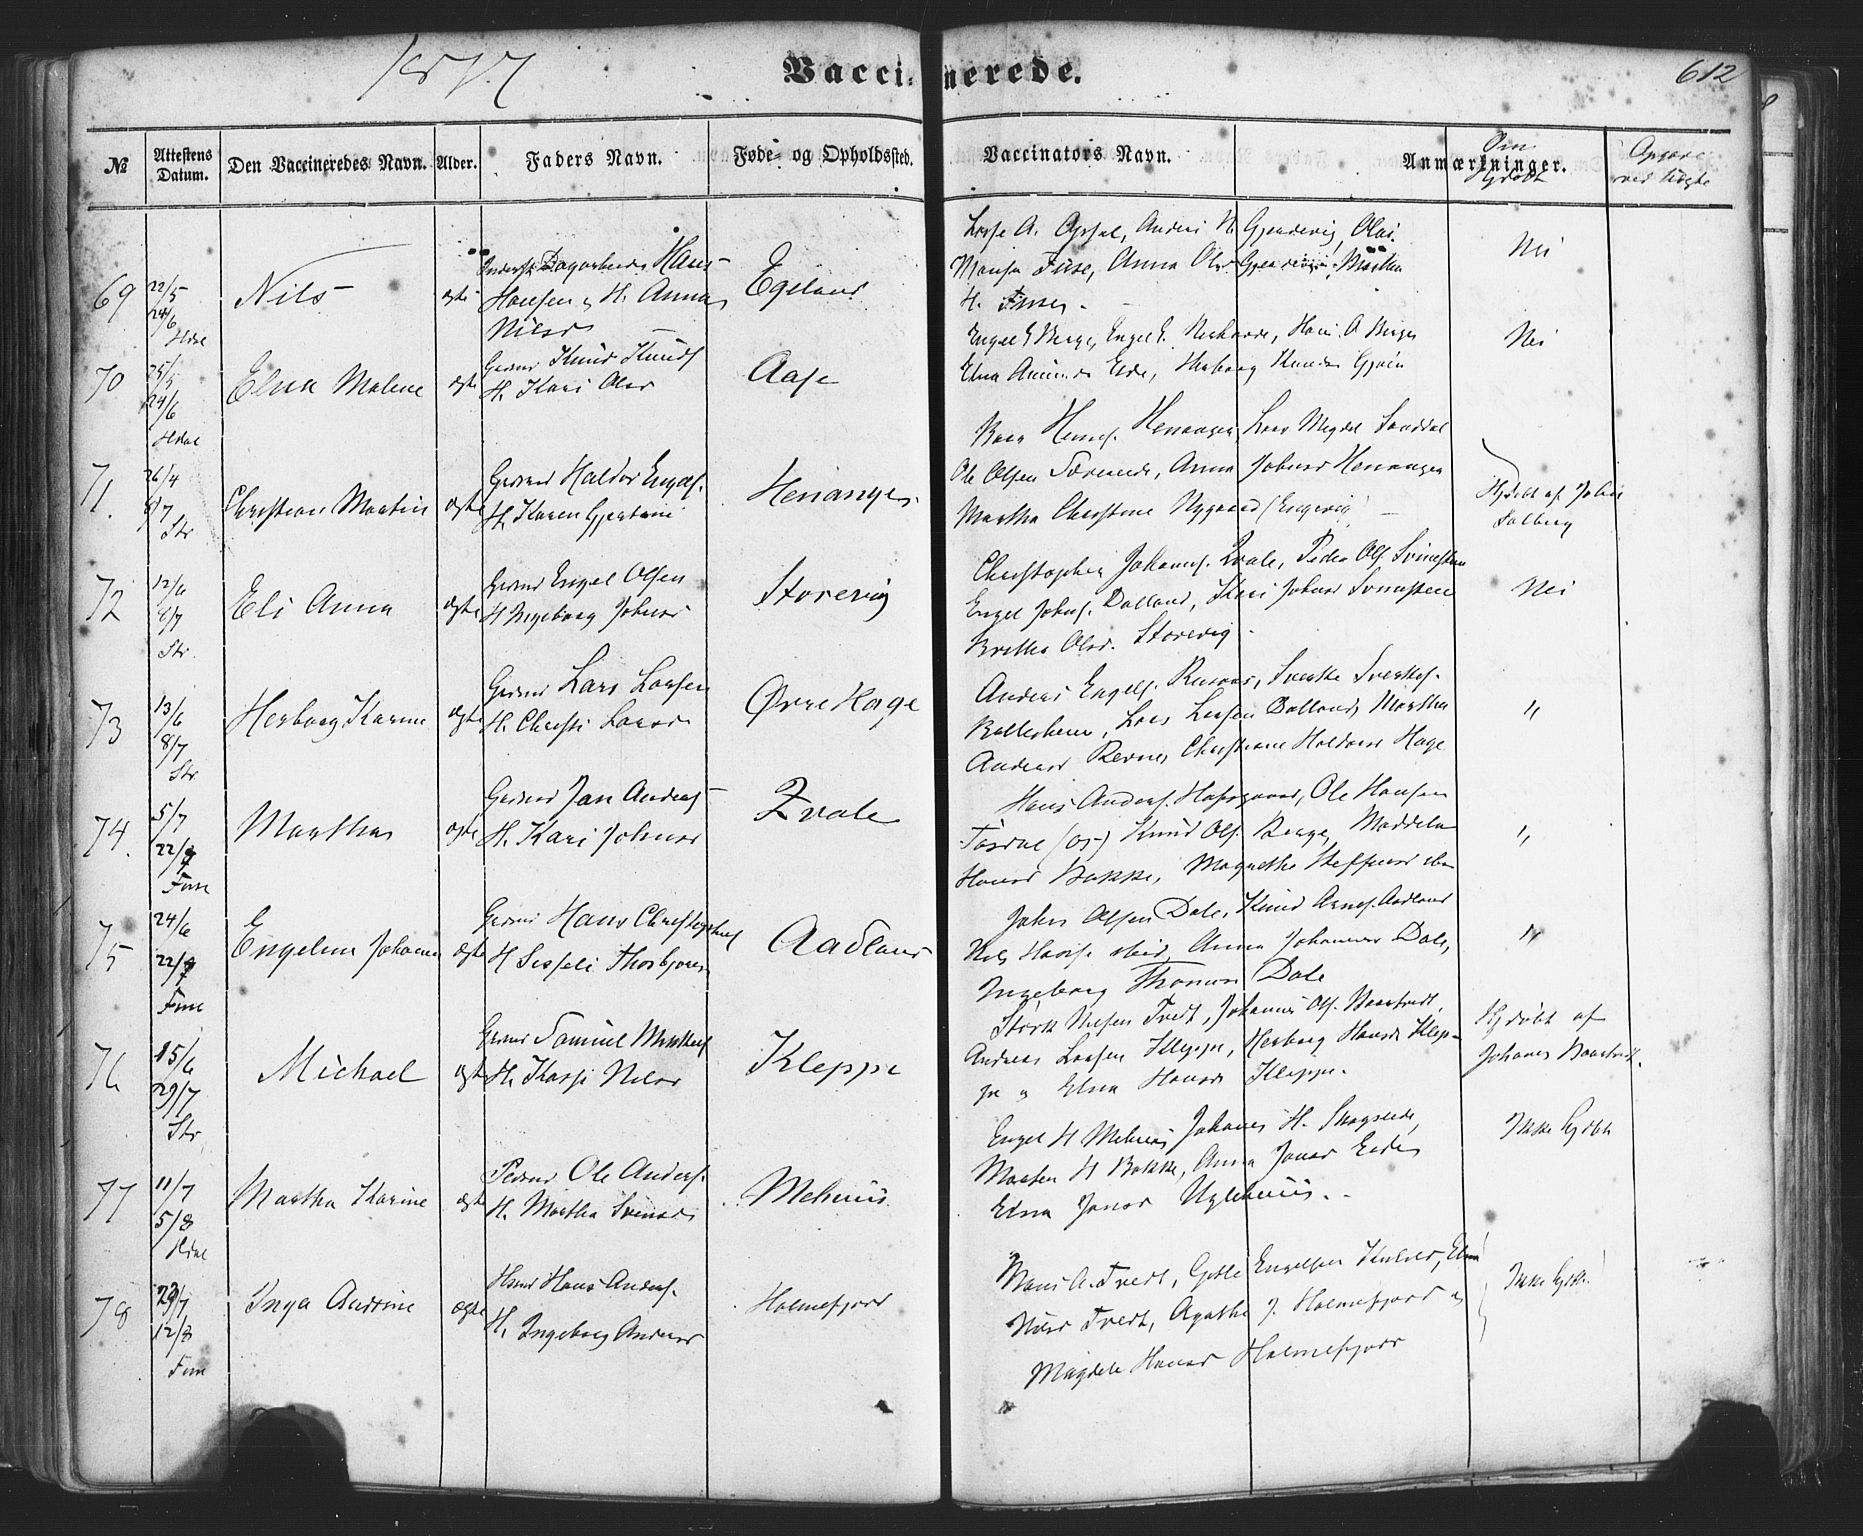 1877
Vaccinerede.
612
№
Attestens Datum.
Den Vaccineredes Navn.
Alder.
Faders Navn.
Føde- og Opholdssted.
Vaccinators Navn.
Anmærkninger.
Om
Hjdøbt
69
22/5
24/6
Hdal
Nils
ægte
Hans
Hansen og H. Anna
Nilsd
Egeland
A. Opsal, Anders N. Gjerdevig, Olai
Fuse, Anna Olsd Gjerdevig, Martha
H. Fuse
Nei
70
25/5
24/6
Hdal
Elna Malene
ægte
Grdmd Knud Knuds
H. Kari Olsd
Aase
Engel E Berge, Engel E. Nerhovde, Hans A Berge
Elna Amunds Eide, Herborg Knudsd Gjøen
Nei
71.
26/4
8/7
Str
Christian Martin
ægte
Grdmd Haldor Engels.
H. Karen Gjertine
Henanger
Hans. Henanger, Lars Magdel Sanddal
Ole Olsen Sævareide, Anna Johnsd Henanger
Martha Christine Nygaard (Engevig)
Hjdøbt af Johan
Solberg
72
12/6
8/7
Str.
Eli Anna
ægte
Grdmd Engel Olsen
H Ingeborg Johnsd
Storevig
Christopher Johanns. Qvale, Peder Ols. Svinestein
Engel Johns. Dalland, Kari Johnsd Svinestein
Brithe Olsd. Storevig
Nei
73
13/6
8/7
Str
Herborg Karine
ægte
Grdmd Lars Larsen
H. Christi Larsd
Øvre Hage
Anders Engels. Revne, Sverke Sverkes.
Ballesheim, Lars Larsen Dalland, Martha
Andersd Revne, Christiane Haldorsd Hage
"
74.
5/7
22/7
Fuse
Martha
ægte
Grdmd Jan Anders
H. Kari Johnsd
Qvale
Hans Anders. Hafsgaard, Ole Hansen
Tøsdal (Os) Knud Ols. Berge, Maddela
Hansd Bakke, Magrethe Steffensd ibm
"
75
24/6
22/7
Fuse
Engeline Johanne
ægte
Grdmd Hans Christophers
H Sisseli Thorbjørnsd
Aadland
John Olsen Dale, Knud Arnes. Aadland
Nils Hans. ibid, Anna Johannesd Dale,
Ingeborg Thomasd Dale
"
76
15/6
29/7
Str.
Michael
ægte
Grdmd Samuel Mikkels
H. Kassi Nilsd
Kleppe
Størk Nilsen Tvedt, Johannes Ols. Baartvedt,
Andreas Larsen Kleppe, Herborg Hansd Klep-
pe og Elna Hansd Kleppe.
Hjdøbt af
Johannes Baartvedt.
77
11/7
5/8
Hdal
Martha Karine
ægte
Pdsmd Ole Anders.
H. Martha Svensd
Mehuus
Engel H Mehuus, Johannes H. Skogseide,
Marten H Bakke, Anna Jonsd Eide
Elna Jonsd Uglehuus.
Ikke hjdøbt
78
29/7
12/8
Fuse
Inga Andrine
ægte
Hsmd Hans Anders.
H. Ingeborg Andersd
Holmefjord
Hans A. Tvedt, Gitle Engelsen Kulild, Elna
Nilsd Tvedt, Agathe J. Holmefjord og
Magdele Hansd Holmefjord
Ikke hjdøbt